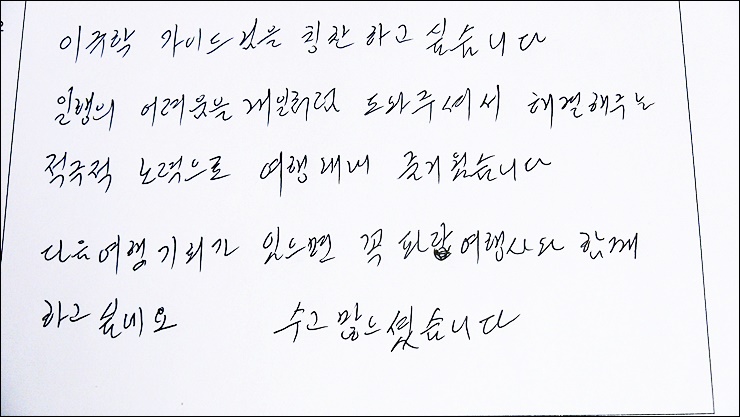 이규학 가이드님을 칭찬하고 싶습니다
일행의 어려움을 제일처럼 도와주셔서 해결해주는
적극적 노력으로 여행내내 즐거웠습니다
다음여행기회가 있으면 꼭 파랑여행사와 함께
하고 싶네요 수고 많으셨습니다